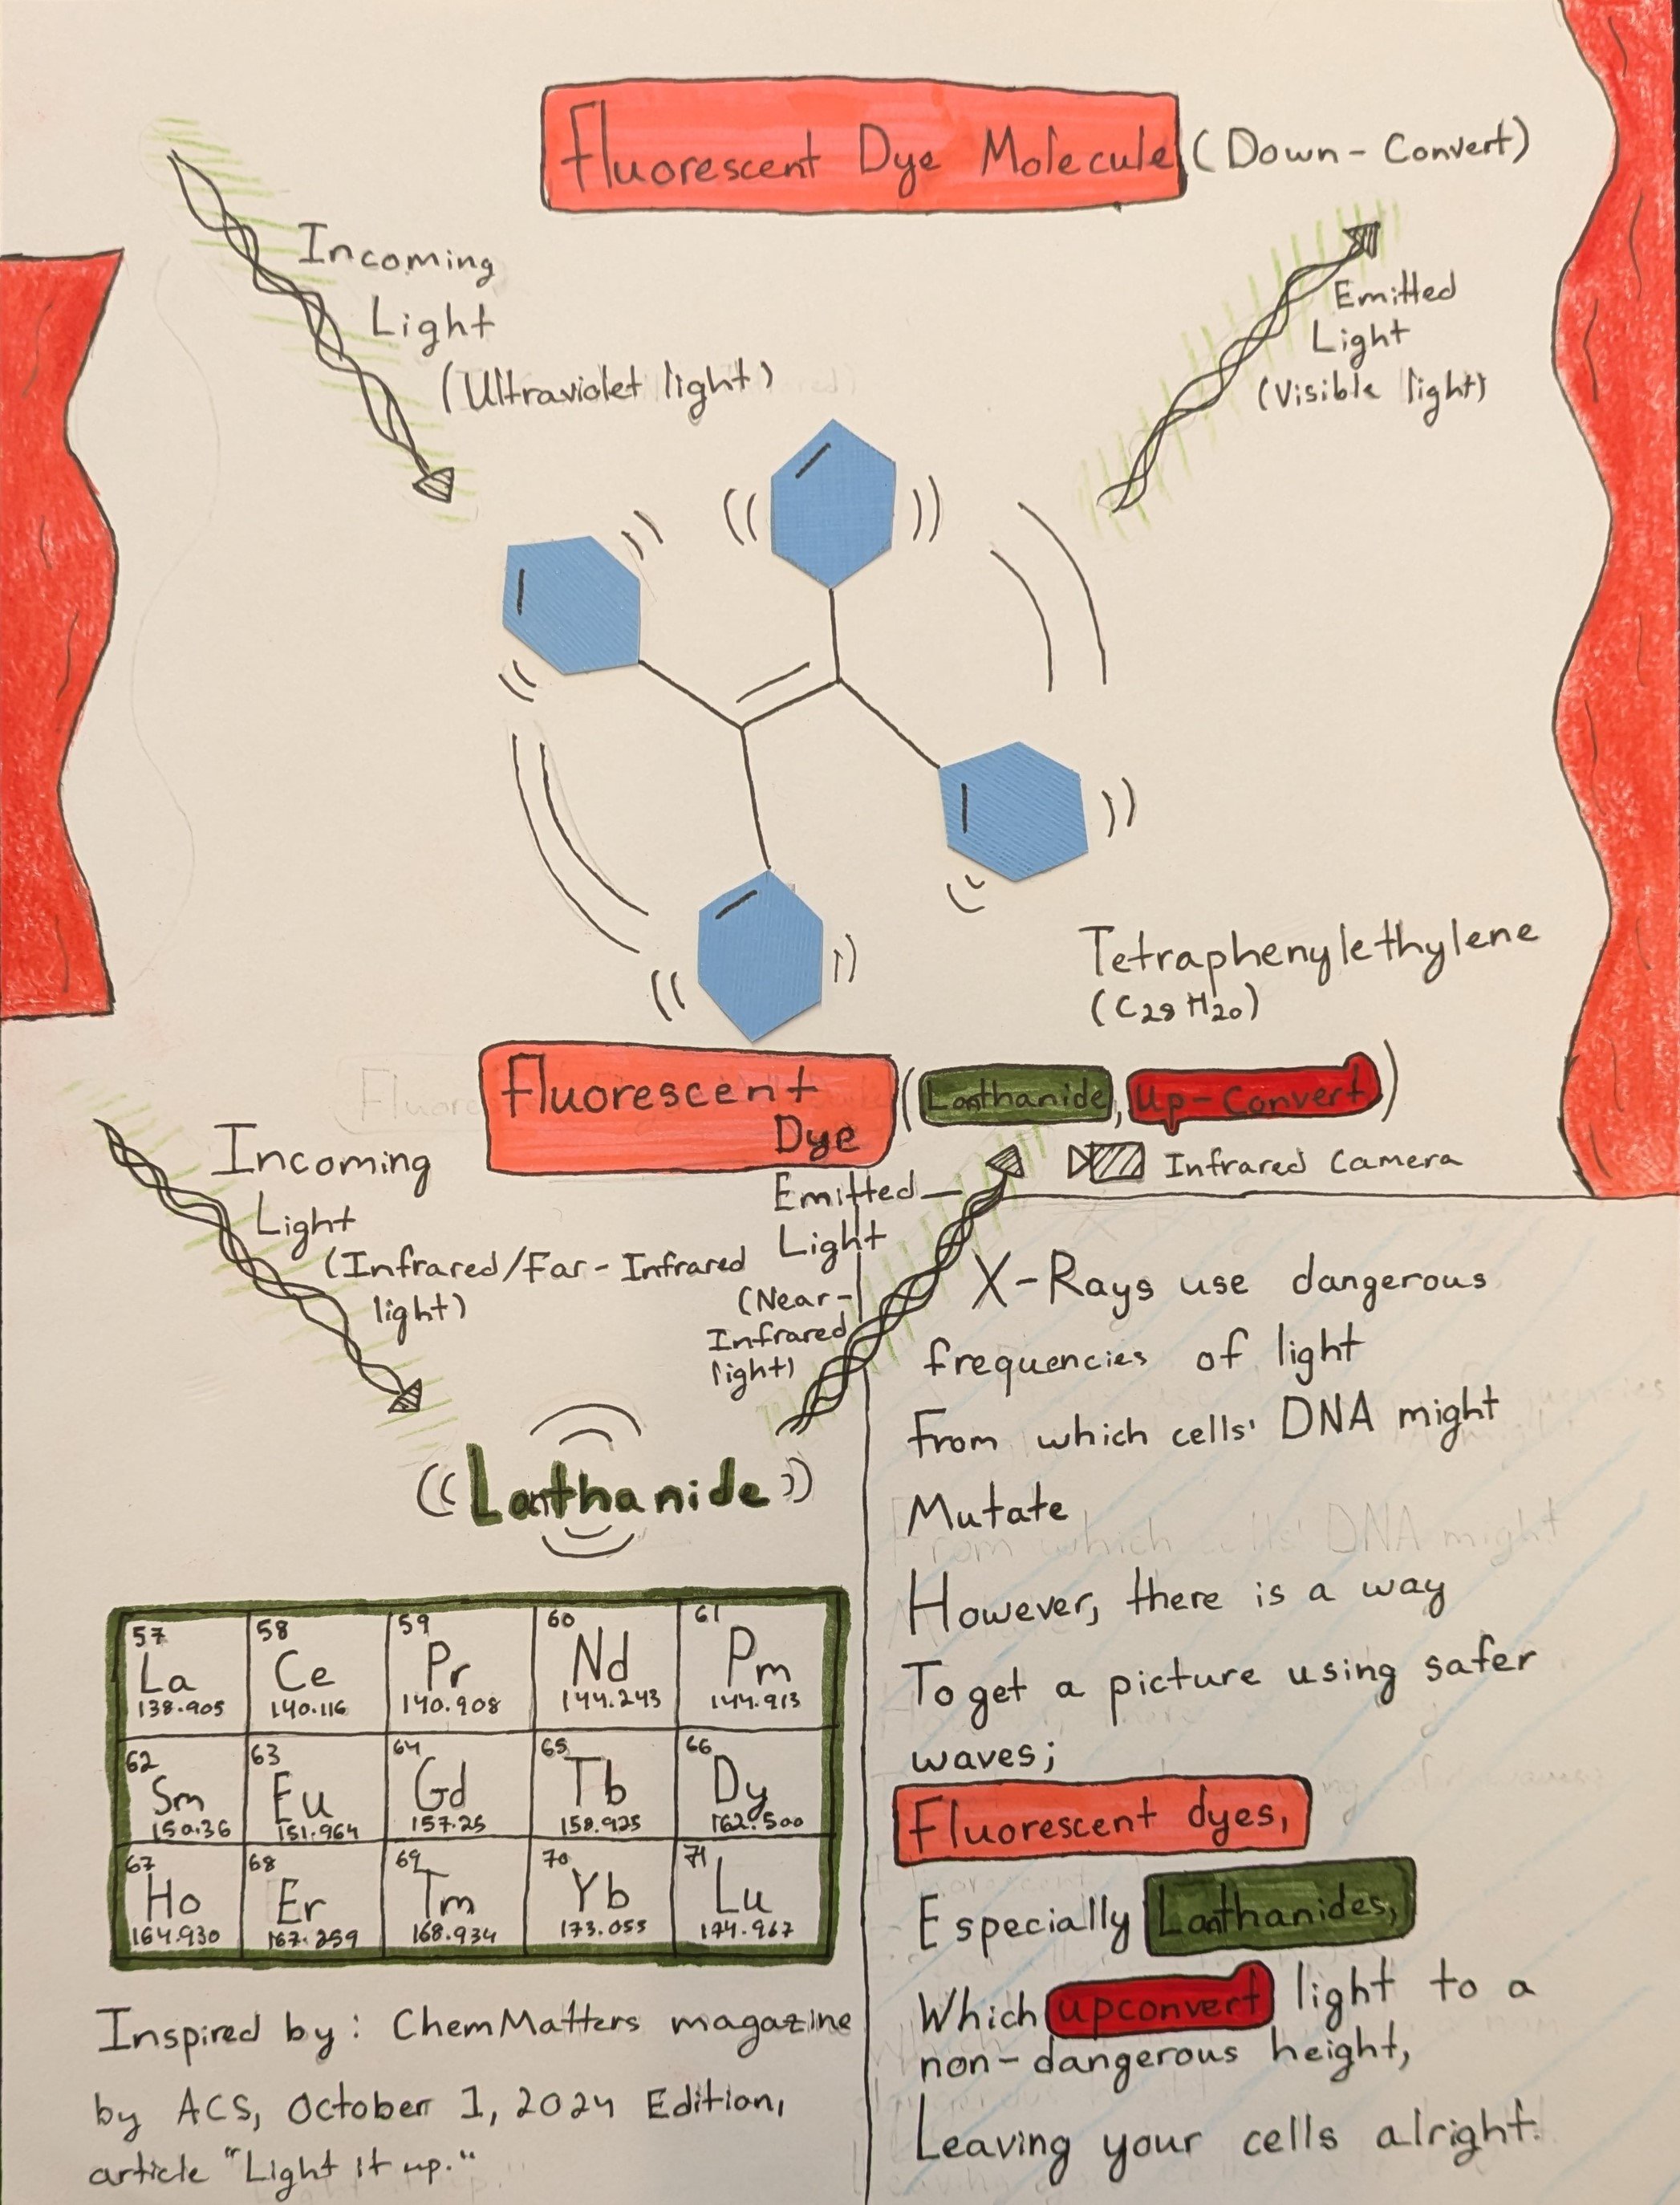 Fluorescent Dye Molecule (Down-Convert)
Incoming
Light
(Ultraviolet light)
Emitted
Light
(Visible light)
Tetraphenylethylene
(C28H20)
Fluorescent
Dye
(Lanthanide, Up-Convert)
Infrared Camera
Incoming
Light
(Infrared/Far-Infrared
light)
Emitted
Light
(Near-
Infrared
light)
Lanthanide
57
La
138.905
58
Ce
140.116
59
Pr
140.908
60
Nd
144.243
61
Pm
144.913
62
Sm
150.36
63
Eu
151.964
64
Gd
157.25
65
Tb
158.925
66
Dy
162.500
67
Ho
164.930
68
Er
167.259
69
Tm
168.934
70
Yb
173.055
71
Lu
174.967
Inspired by: ChemMatters magazine
by ACS, October 1, 2024 Edition,
article "Light it up."
X-Rays use dangerous
frequencies of light
From which cells' DNA might
Mutate
However, there is a way
To get a picture using safer
waves;
Fluorescent dyes,
Especially Lanthanides,
Which upconvert light to a
non-dangerous height,
Leaving your cells alright.